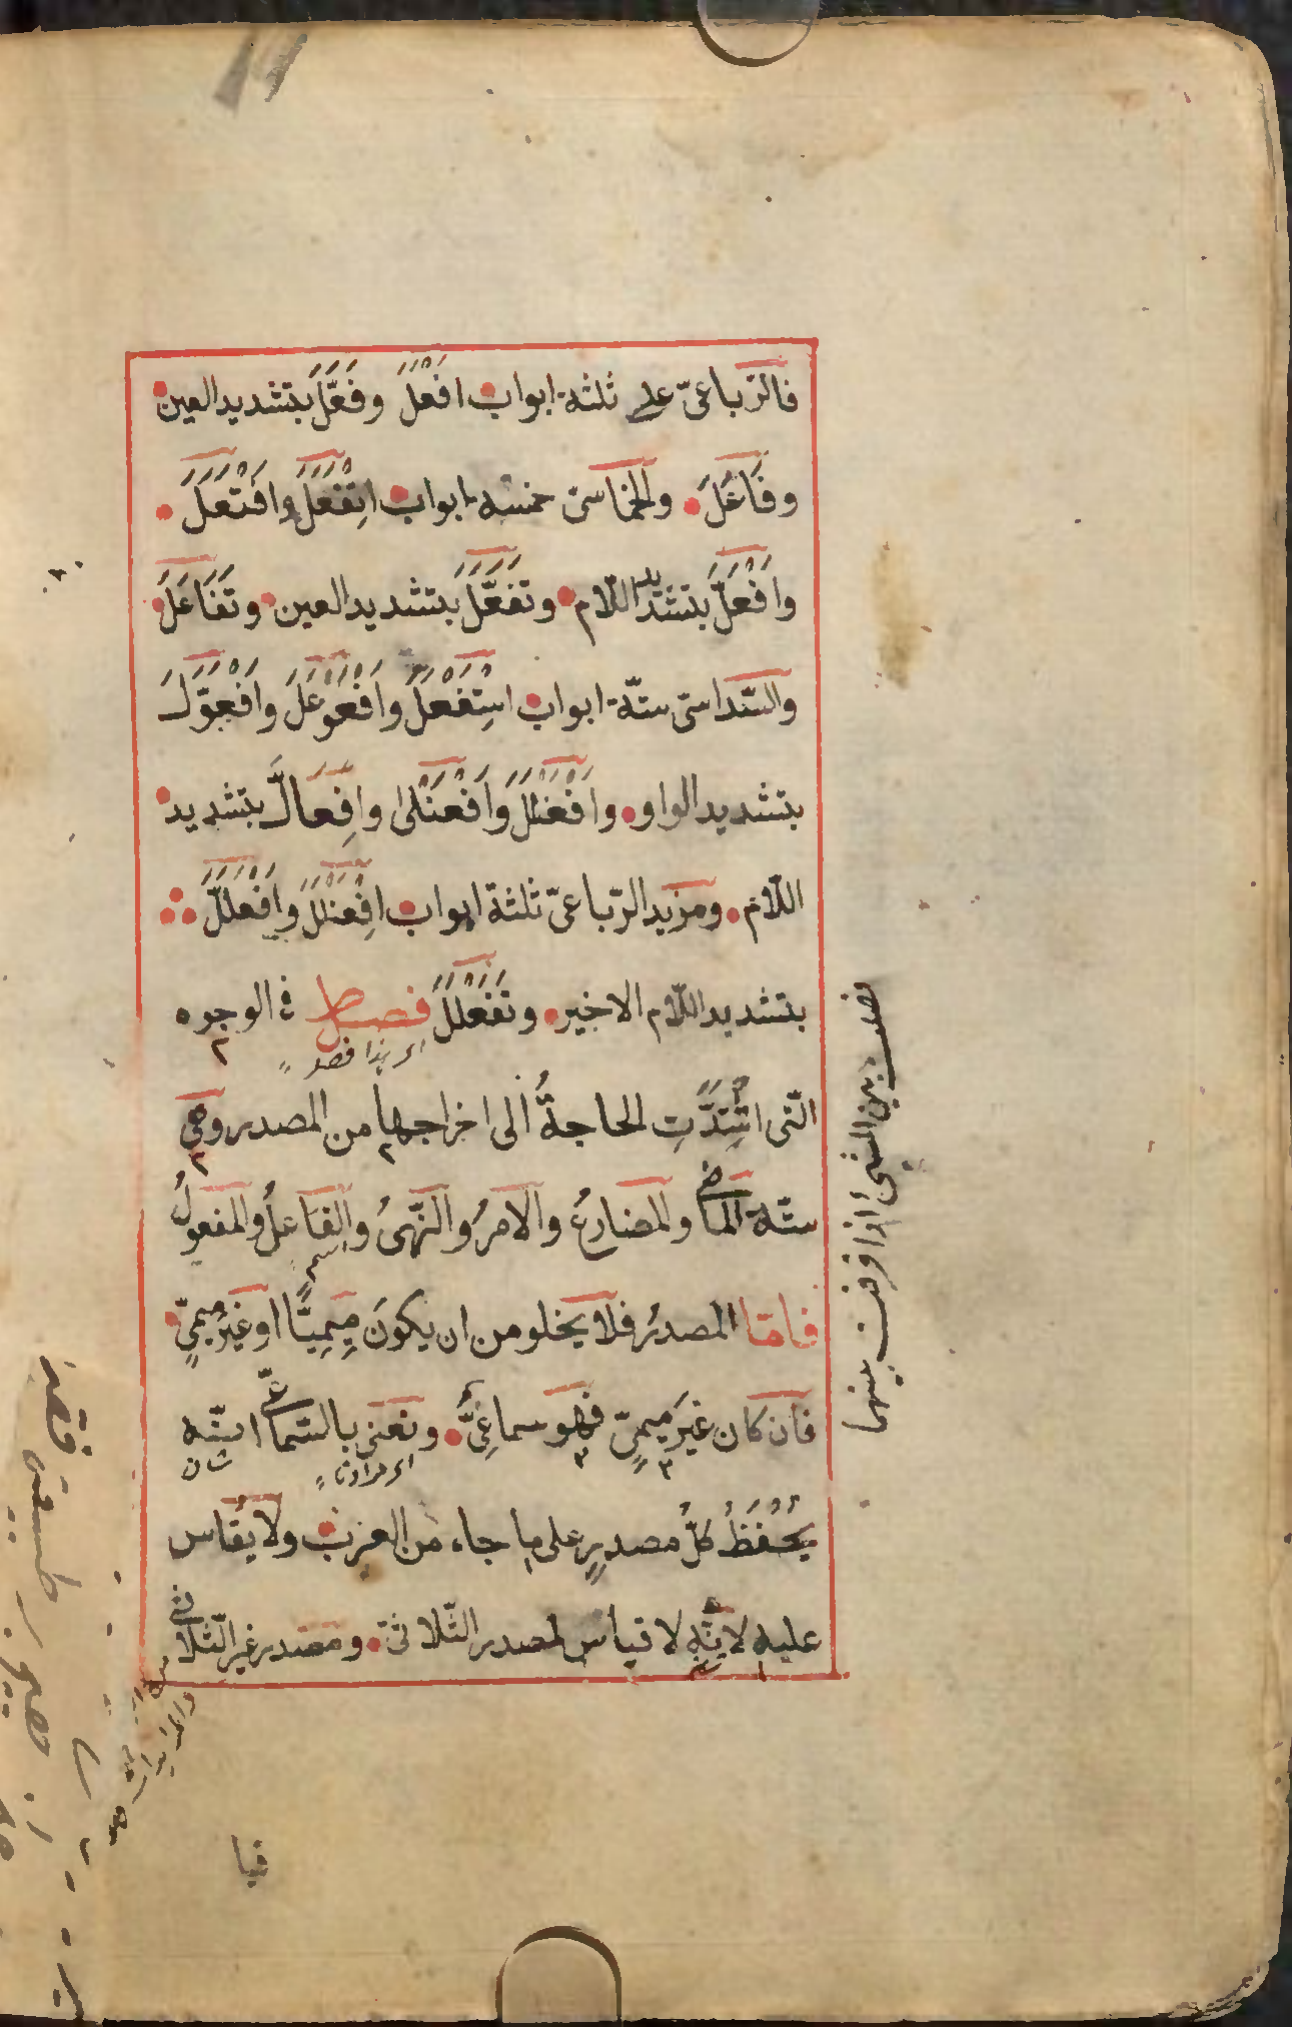 فالرّباعىّ على ثلثة ابواب افْعَلَ وفَعَّلَ بتشديد العين
وفَاعَلَ والخماسىّ خمسه ابواب اِنْفَعَلَ وافْتَعَلَ
وافْعَلَّ بتشديد اللّام وتَفَعَّلَ بتشديد العين وتَفَاعَلَ
والسّداسىّ ستّة ابواب اسْتَفْعَلَ وافْعَوْعَلَ وافْعَوَّلَ
بتشديد الواو وافْعَنْلَلَ وَافْعَنْلىٰ وافِعَالَّ بتشديد
اللّام ومزيد الرّباعىّ ثلثة ابواب افِعَنْلَلَ وافْعَلَلَّ
بتشديد اللّام الاخير وتَفَعْلَلَ فصل فى الوجوه
اى هذا فصل
الّتى اشْتَدَّتِ الحاجةُ الى اخراجها من المصدر وهى
ستّة الماضى والمضارعُ والامرُ والنّهىُ والفَاعلُ والمفعولُ
اسم
فامّا المصدرُ فلا يخلو من ان يكونَ مِيمِيًّا اوغيرَ ميمىٍّ
فان كان غيرَ ميمىٍّ فهو سماعىٌّ ونعنى بالسّماعىّ انّه
اى مرادنا شان
يُحْفَظُ كلُّ مصدرٍ على ما جاء من العرب ولا يُقاس
عليه لانّه لا قياس لمصدر الثّلاثىّ ومصدر غير الثّلاثى
قيا
فصل بين الشيئى اذا فرقت بينهما